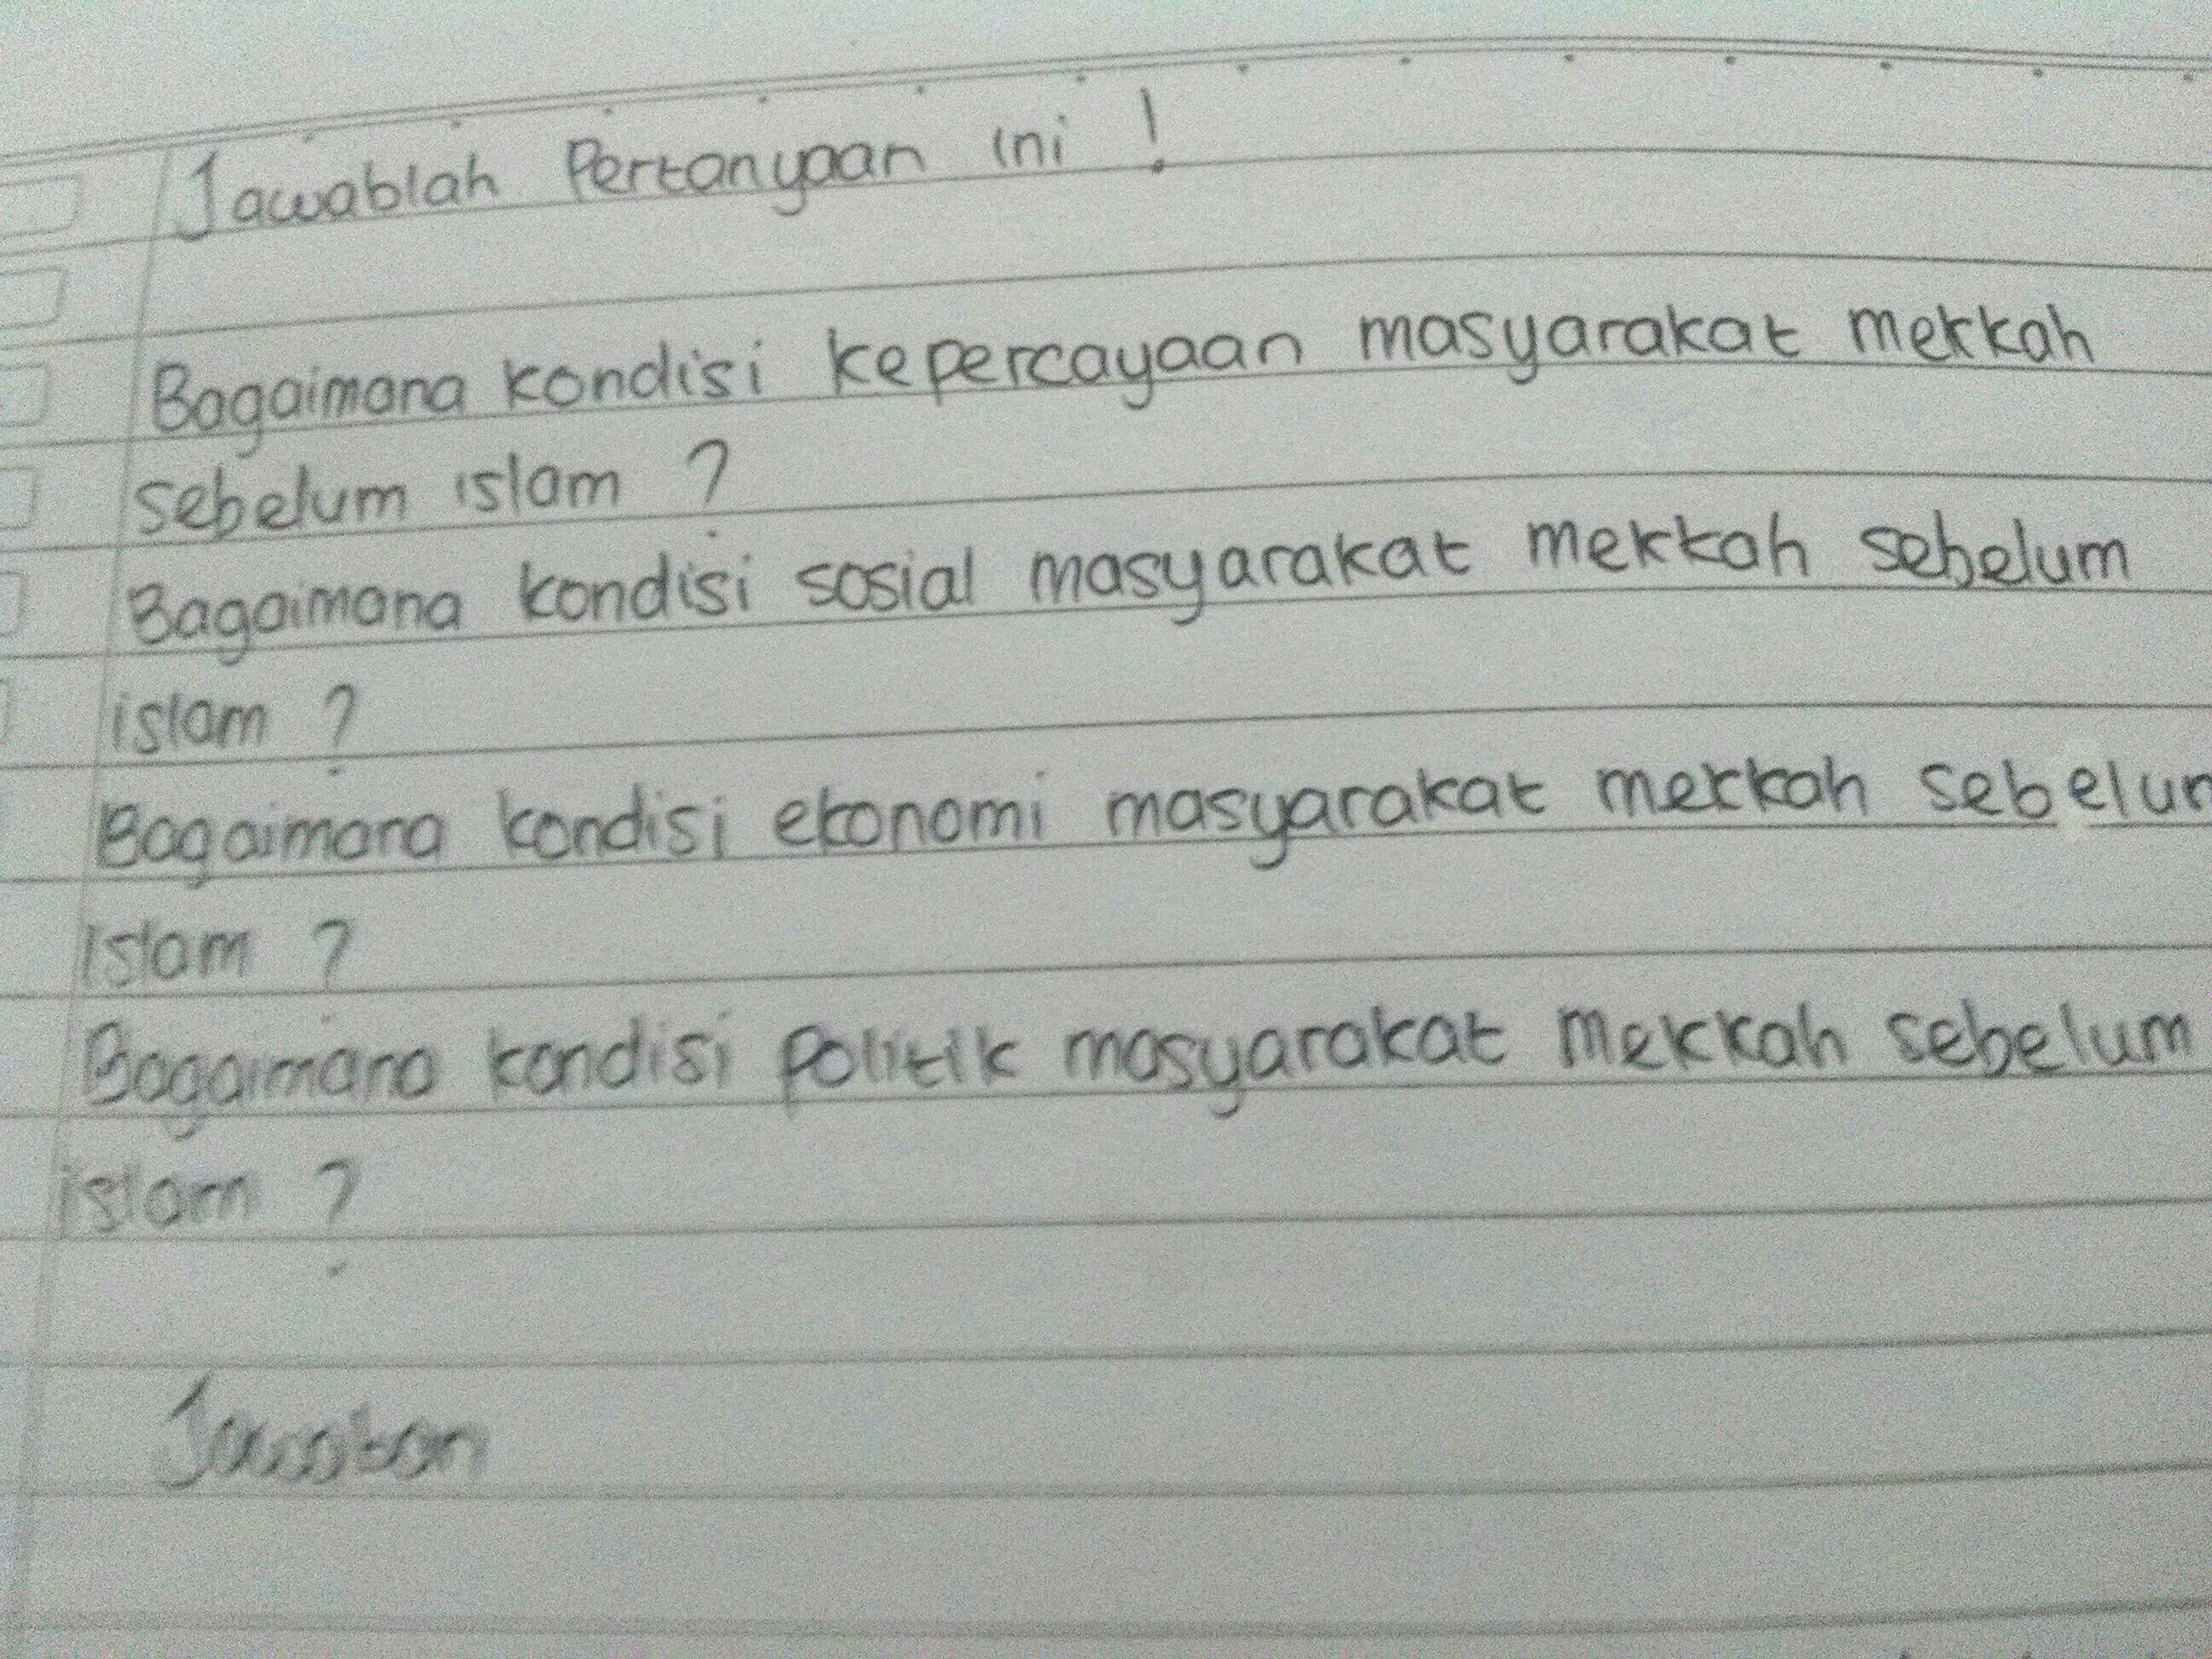 Jawablah Pertanyaan ini !
Bagaimana kondisi kepercayaan masyarakat mekkah
sebelum islam ?
Bagaimana kondisi sosial masyarakat mekkah sebelum
islam ?
Bagaimana kondisi ekonomi masyarakat mekkah
Islam ?
Bagaimana kondisi politik masyarakat Mekkah sebelum
islam ?
Jawaban